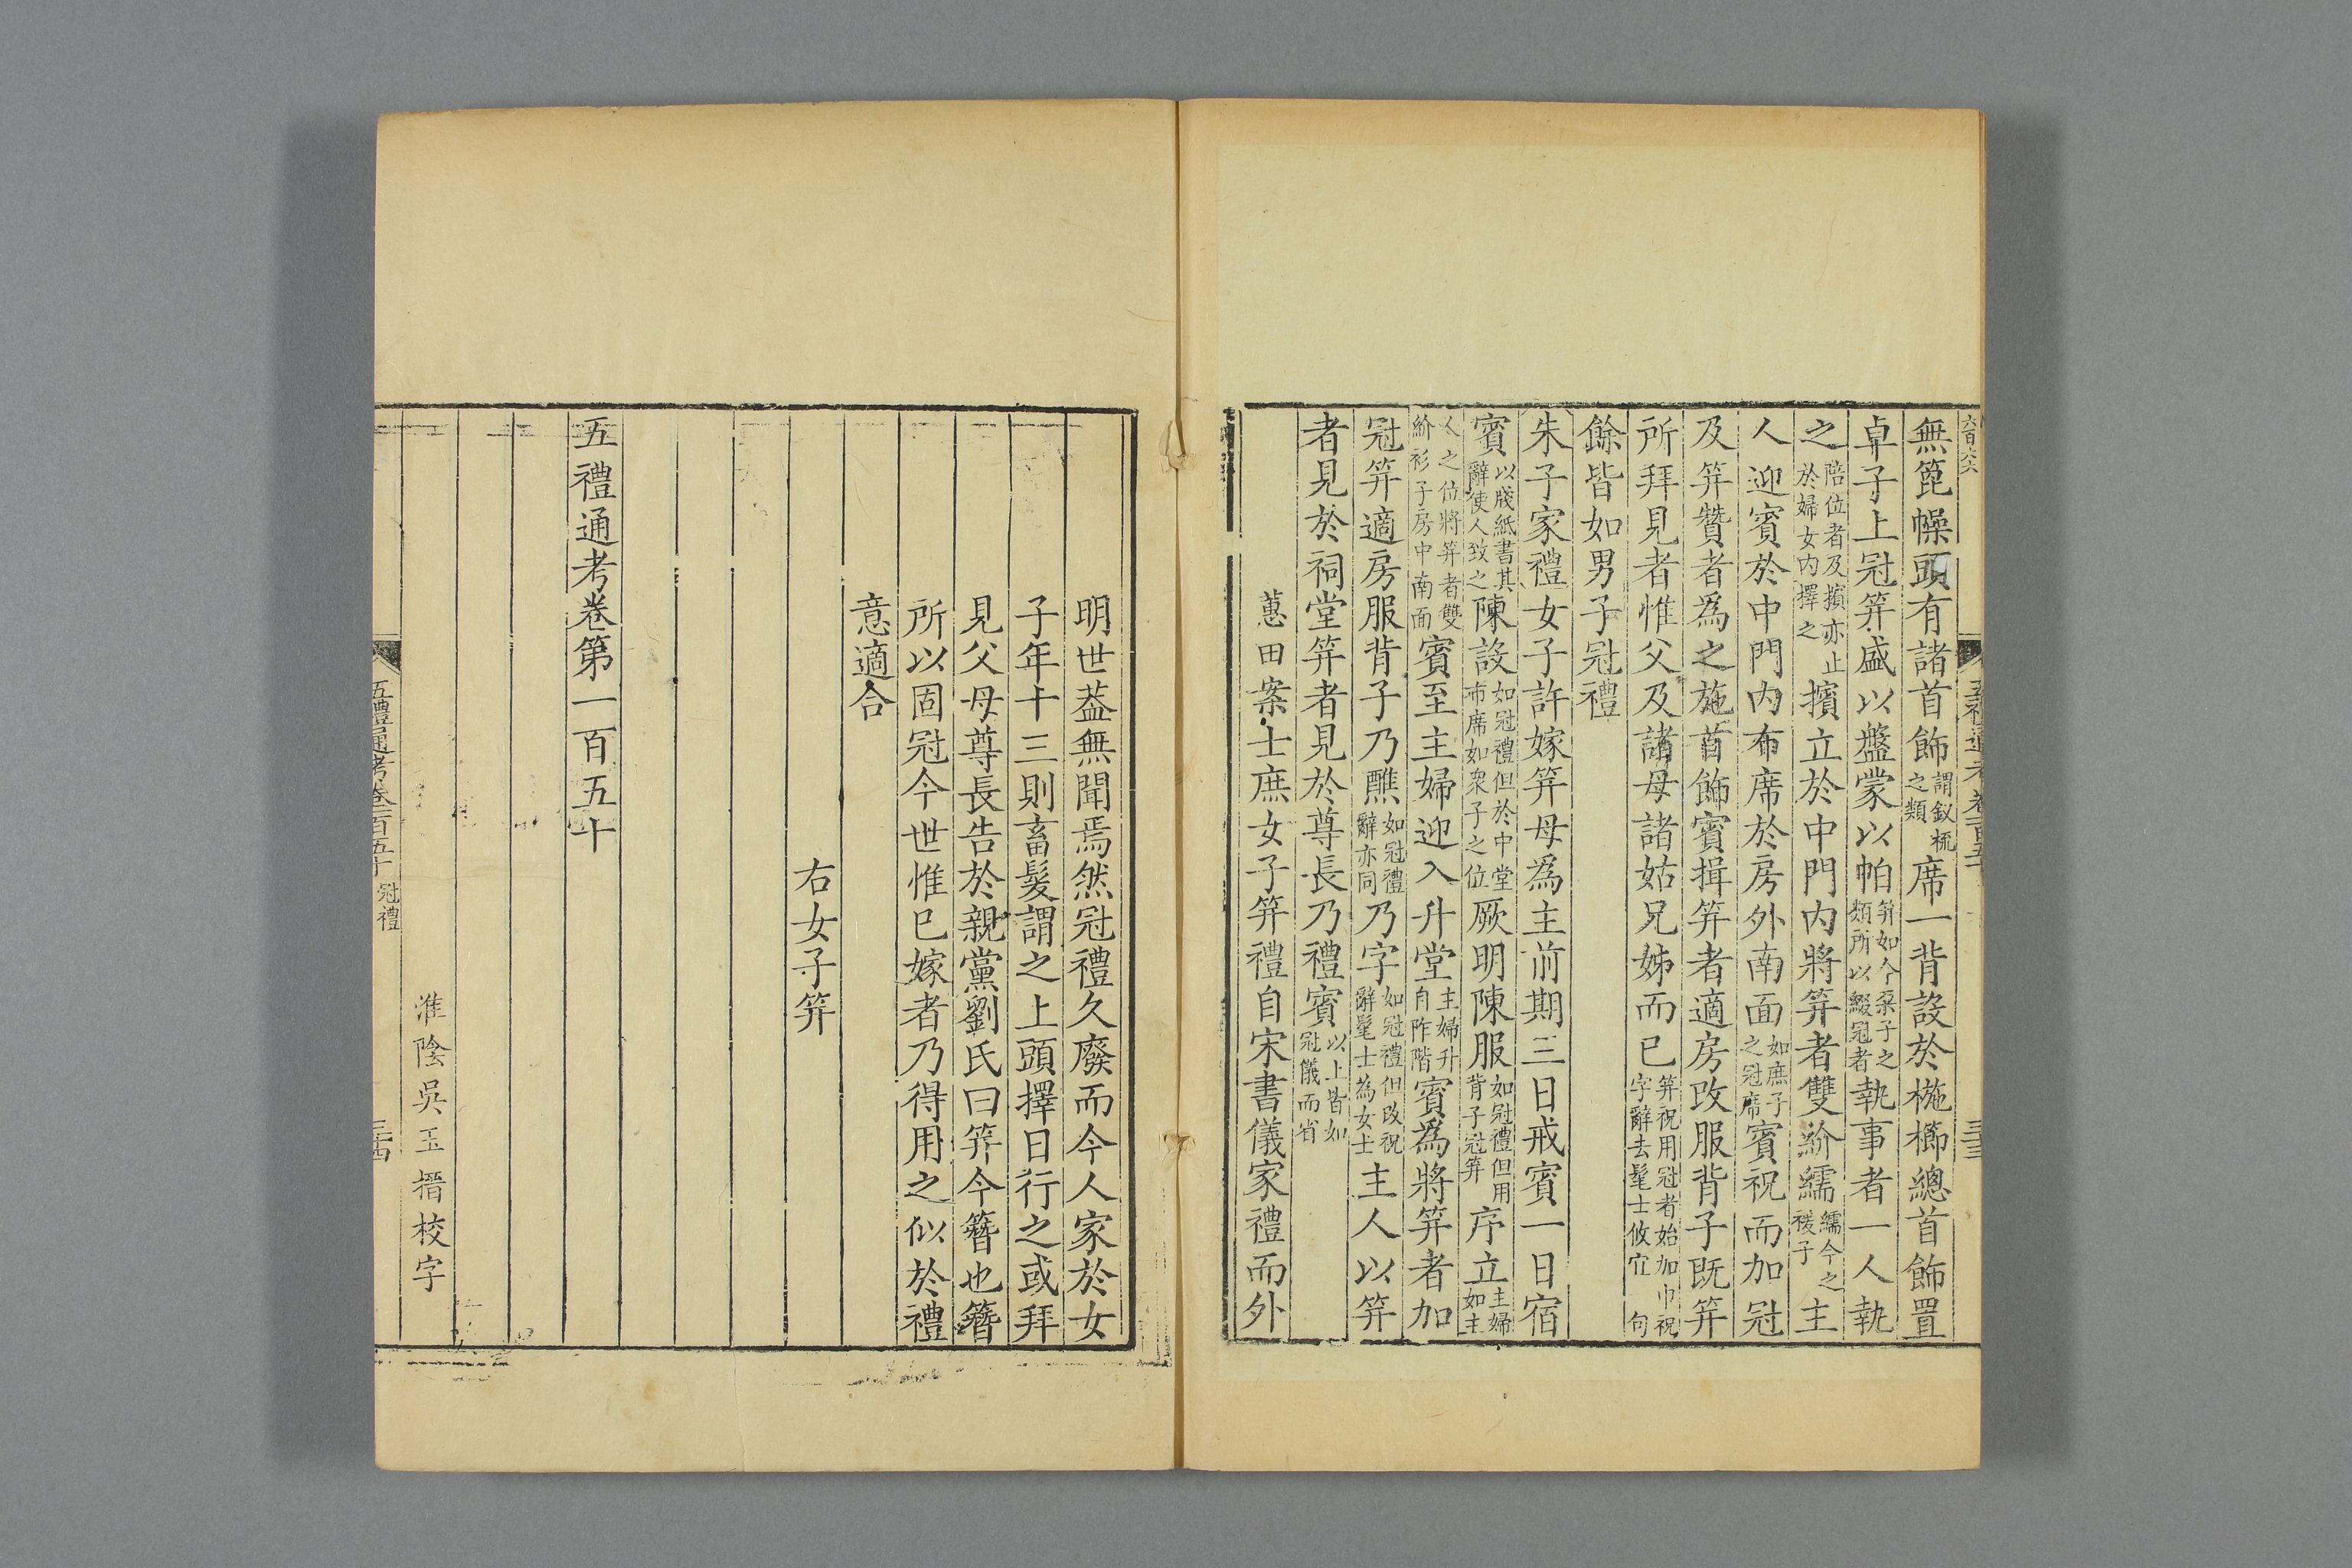 六百六六
無篦幧頭有諸首飾謂釵梳之類席一背設於椸櫛總首飾置
卓子上冠笄盛以盤蒙以帕笄如今朶子之類所以綴冠者執事者一人執
之陪位者及擯亦止於婦女内擇之擯立於中門内將笄者雙紒襦襦今之襖子主
人迎賓於中門内布席於房外南面如庶子之冠席賓祝而加冠
及笄贊者爲之施首飾賓揖笄者適房改服背子既笄
所拜見者惟父及諸母諸姑兄姊而已笄祝用冠者始加巾祝字辭去髦士攸宜句
餘皆如男子冠禮
朱子家禮女子許嫁笄母爲主前期三日戒賓一日宿
賓以牋紙書其辭使人致之陳設如冠禮但於中堂布席如衆子之位厥明陳服如冠禮但用背子冠笄序立主婦如主
人之位將笄者雙紒衫子房中南面賓至主婦迎入升堂主婦升自阼階賓爲將笄者加
冠笄適房服背子乃醮如冠禮辭亦同乃字如冠禮但改祝辭髦士為女士主人以笄
者見於祠堂笄者見於尊長乃禮賓以上皆如冠儀而省
蕙田案士庶女子笄禮自宋書儀家禮而外
明世葢無聞焉然冠禮久廢而今人家於女
子年十三則畜髮謂之上頭擇日行之或拜
見父母尊長告於親黨劉氏曰笄今簪也簪
所以固冠今世惟已嫁者乃得用之似於禮
意適合
右女子笄
五禮通考卷第一百五十
淮陰吳玉搢校字
五禮通考卷一百五十 冠禮
三十四